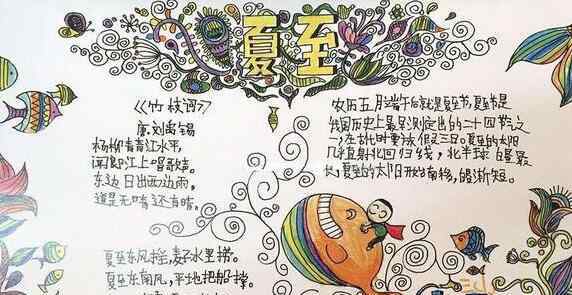 夏至
《竹枝词》
唐.刘禹锡
杨柳青青江水平,
闻郎江上唱歌声。
东边日出西边雨,
道是无晴还有晴。
夏至东风摇,麦子水里捞。
夏至东南风,平地把船撑。
农历五月端午后就是夏至节,夏至是
我国历史上最早测定出的二十四节气之
一,在古代时要放假三日。夏至的太阳
几直射北回归线,北半球白昼最
长,夏至的太阳开始南移,昼渐短。